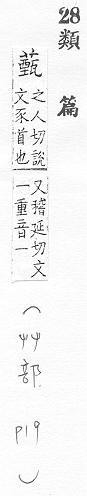 28類篇
薽
之人切說
文豕首也
又稽延切文
一重音一
(艸部 P19)